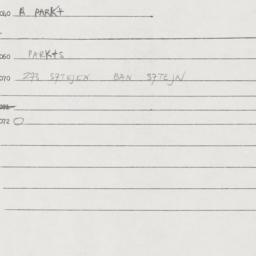 060 A PARK+
060 PARK+S
070 273 S7TEJEN BAN S7TEJN
072 O